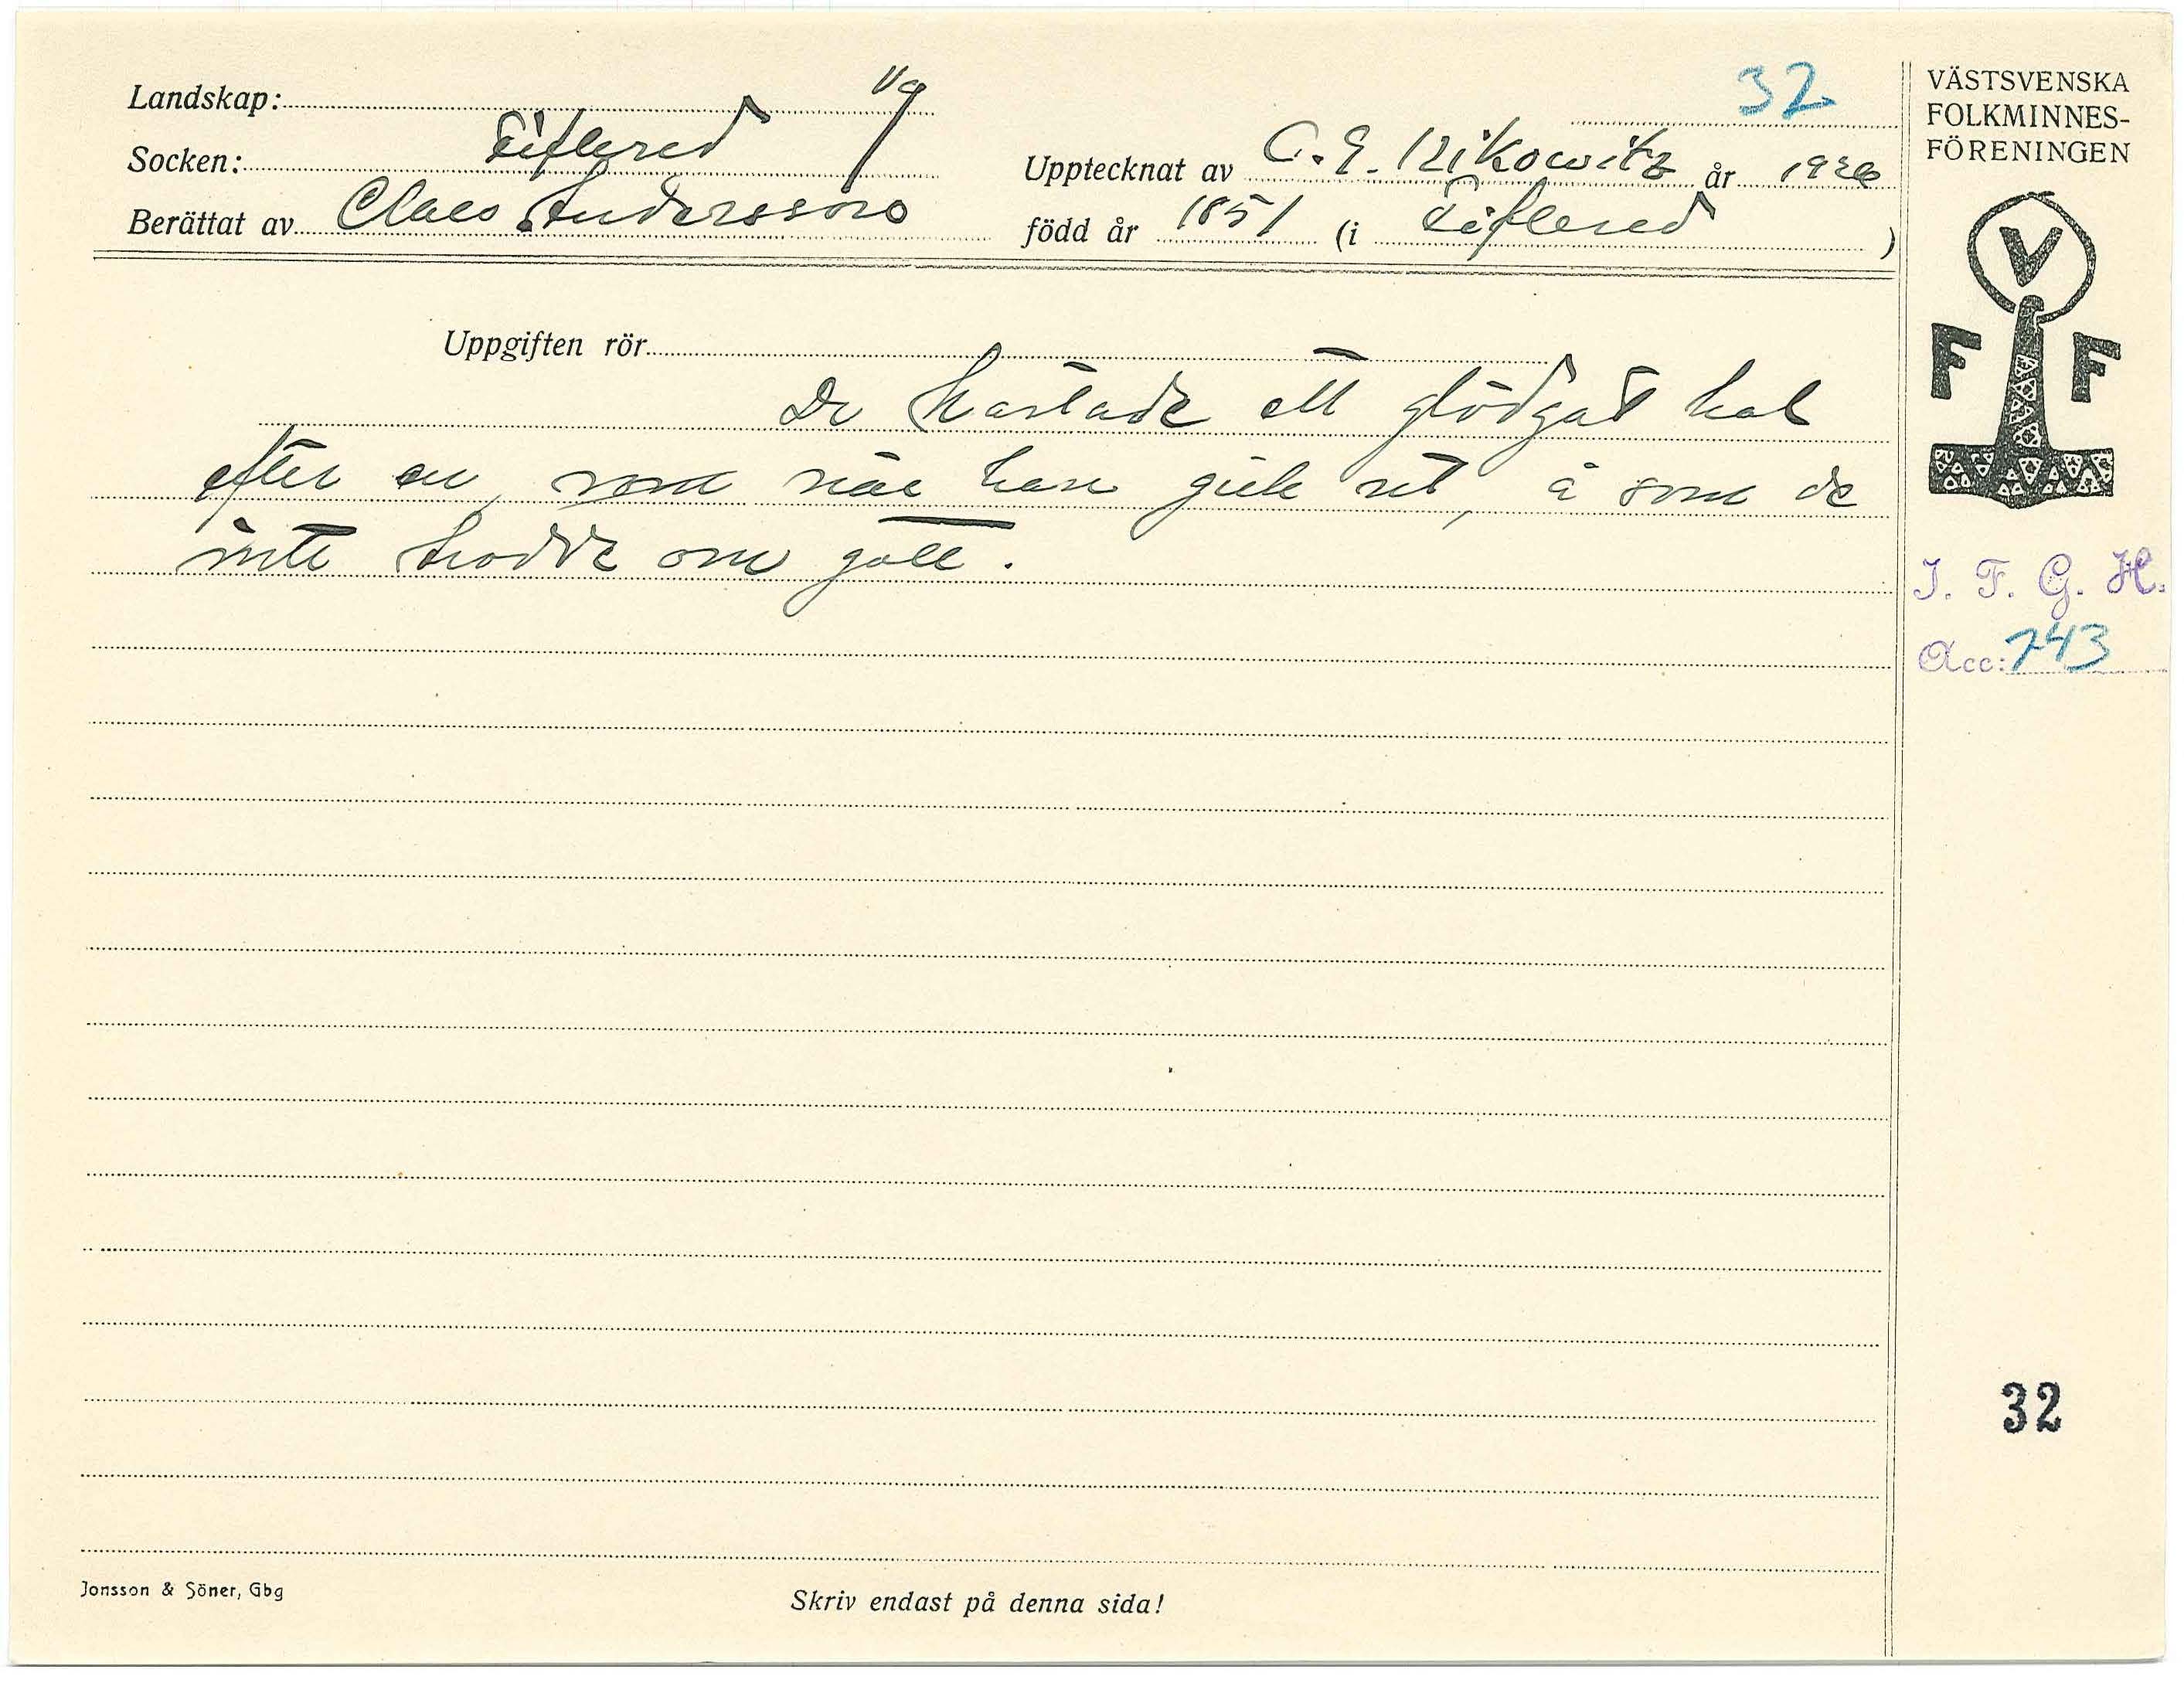 Landskap: Vg
32
Socken: Eiflered
Upptecknat av C. G. Izikowitz år 1926
Berättat av Claes Andersson
född år 1851 (i Eiflered)
VÄSTSVENSKA
FOLKMINNES-
FÖRENINGEN
V
F F
Uppgiften rör
De kastade ett glödgat kol
efter en, som när han gick ut, å som de
inte trodde om gott.
I. F. G. H.
Acc: 743
32
Jonsson & Söner, Gbg
Skriv endast på denna sida!